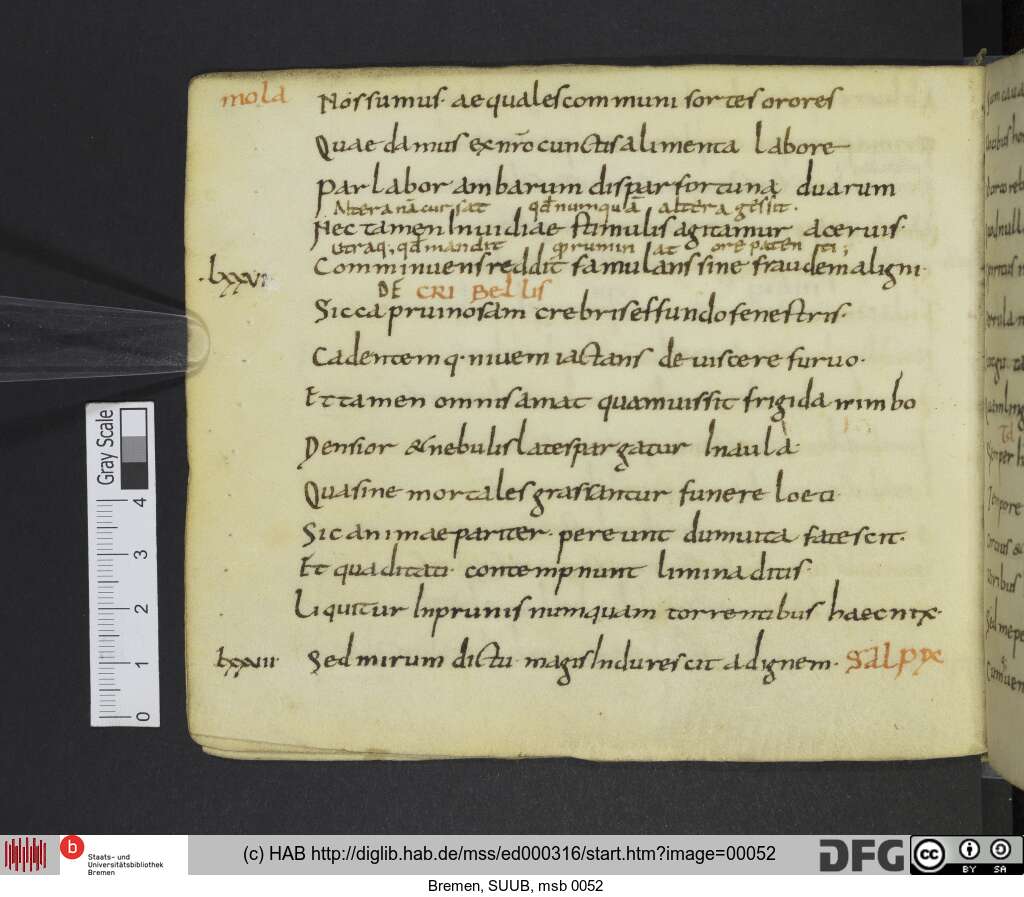 mola Nos sumus aequales communi sorte sorores
Quae damus ex nr̄o cunctis alimenta labore
Par labor ambarum dispar fortuna duarum
Altera nā cursat qđ numquā altera gessit.
Nec tamen Invidiae stimulis agitamur acervis.
utraq, qđ mandit ore patenti;
lxxvi Comminuens reddit famulans sine fraude maligni
DE CRIBellis
Sicca pruinosam crebris effundo fenestris.
Cadentemq. nivem iactans de viscere furvo.
Et tamen omnis amat quamvis sit frigida nimbo
Densior & nebulis late spargatur In aula
Qua sine mortales grassantur funere loeti
Sic animae pariter pereunt dum vita fatescit.
Et qua ditati contempnunt limina ditis.
Liquitur In prunis numquam torrentibus haec nix.
lxxviii Sed mirum dictu magis Indurescit ad ignem. Salpix
Gray Scale
4
3
2
1
0
b
Staats- und
Universitätsbibliothek
Bremen
(c) HAB http://diglib.hab.de/mss/ed000316/start.htm?image=00052
DFG
cc
BY SA
Bremen, SUUB, msb 0052